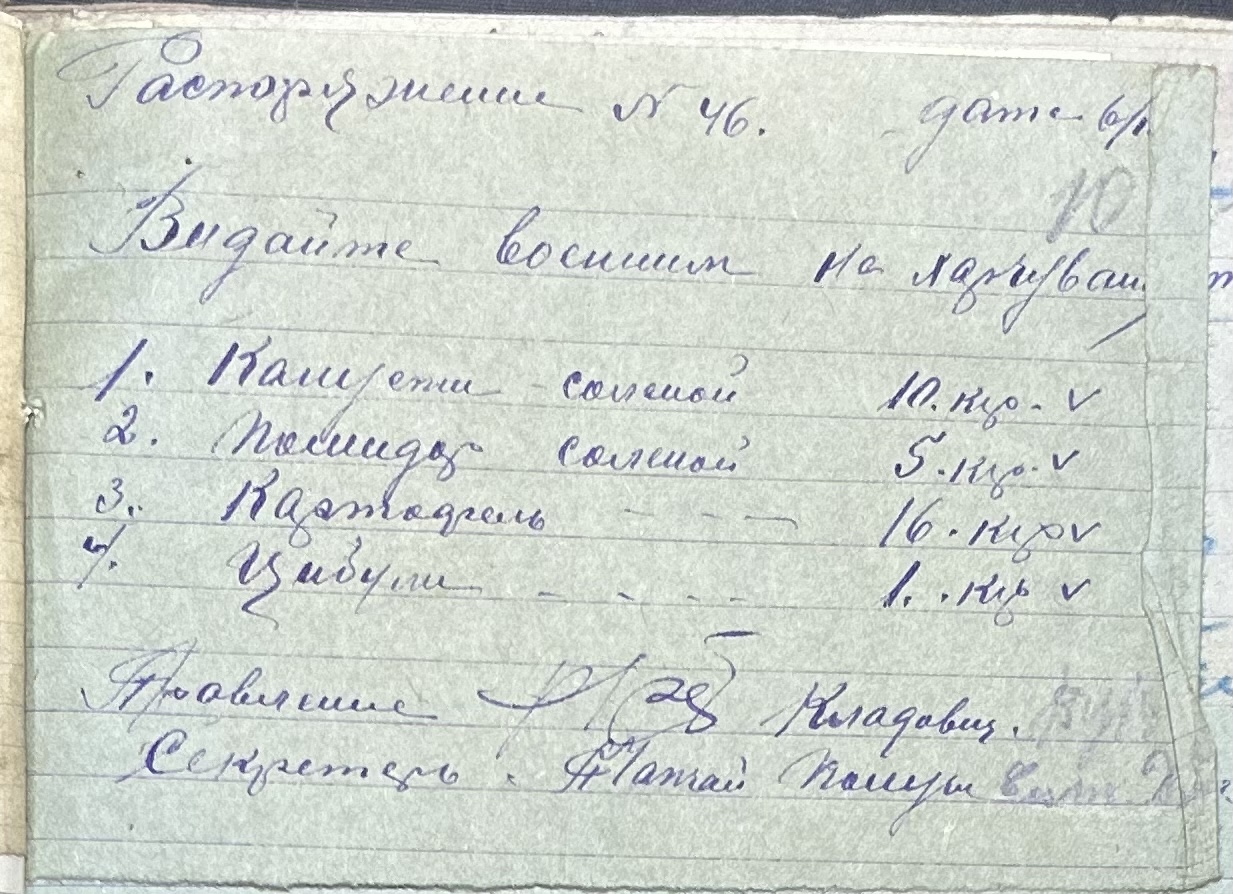 Распоряжение № 46. дата 6/1
10
Видайте военим на харчуван
1. Капусти соленой 10. кгр. v
2. Помидор соленой 5. кгр. v
3. Картофель - - - 16. кгр v
4. Цибули - - - - 1. . кгр v
Правление Кладовщ.
Секретарь.